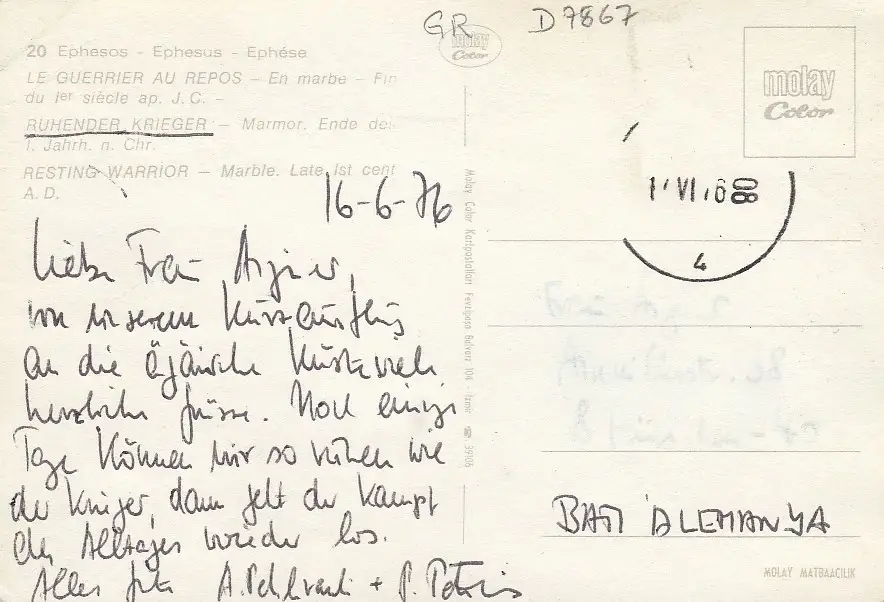 GR D7867
molay
Color
20 Ephesos - Ephesus - Ephése
LE GUERRIER AU REPOS – En marbe – Fin
du Ier siècle ap. J. C. –
RUHENDER KRIEGER – Marmor. Ende des
1. Jahrh. n. Chr.
RESTING WARRIOR – Marble. Late Ist cent
A. D.
molay
Color
16-6-76
Liebe Frau
von unserem Kurzausflug
an die ägäische Küste viele
herzliche Grüsse. Noch einige
Tage können wir so ruhen wie
der Krieger, dann geht der Kampf
des Alltages wieder los.
Alles Gute A. +
Molay Color Kartpostalları Fevzipaşa Bulvarı 104 - Izmir ☎ 39106
VI
4
BATI ALEMANYA
MOLAY MATBAACILIK